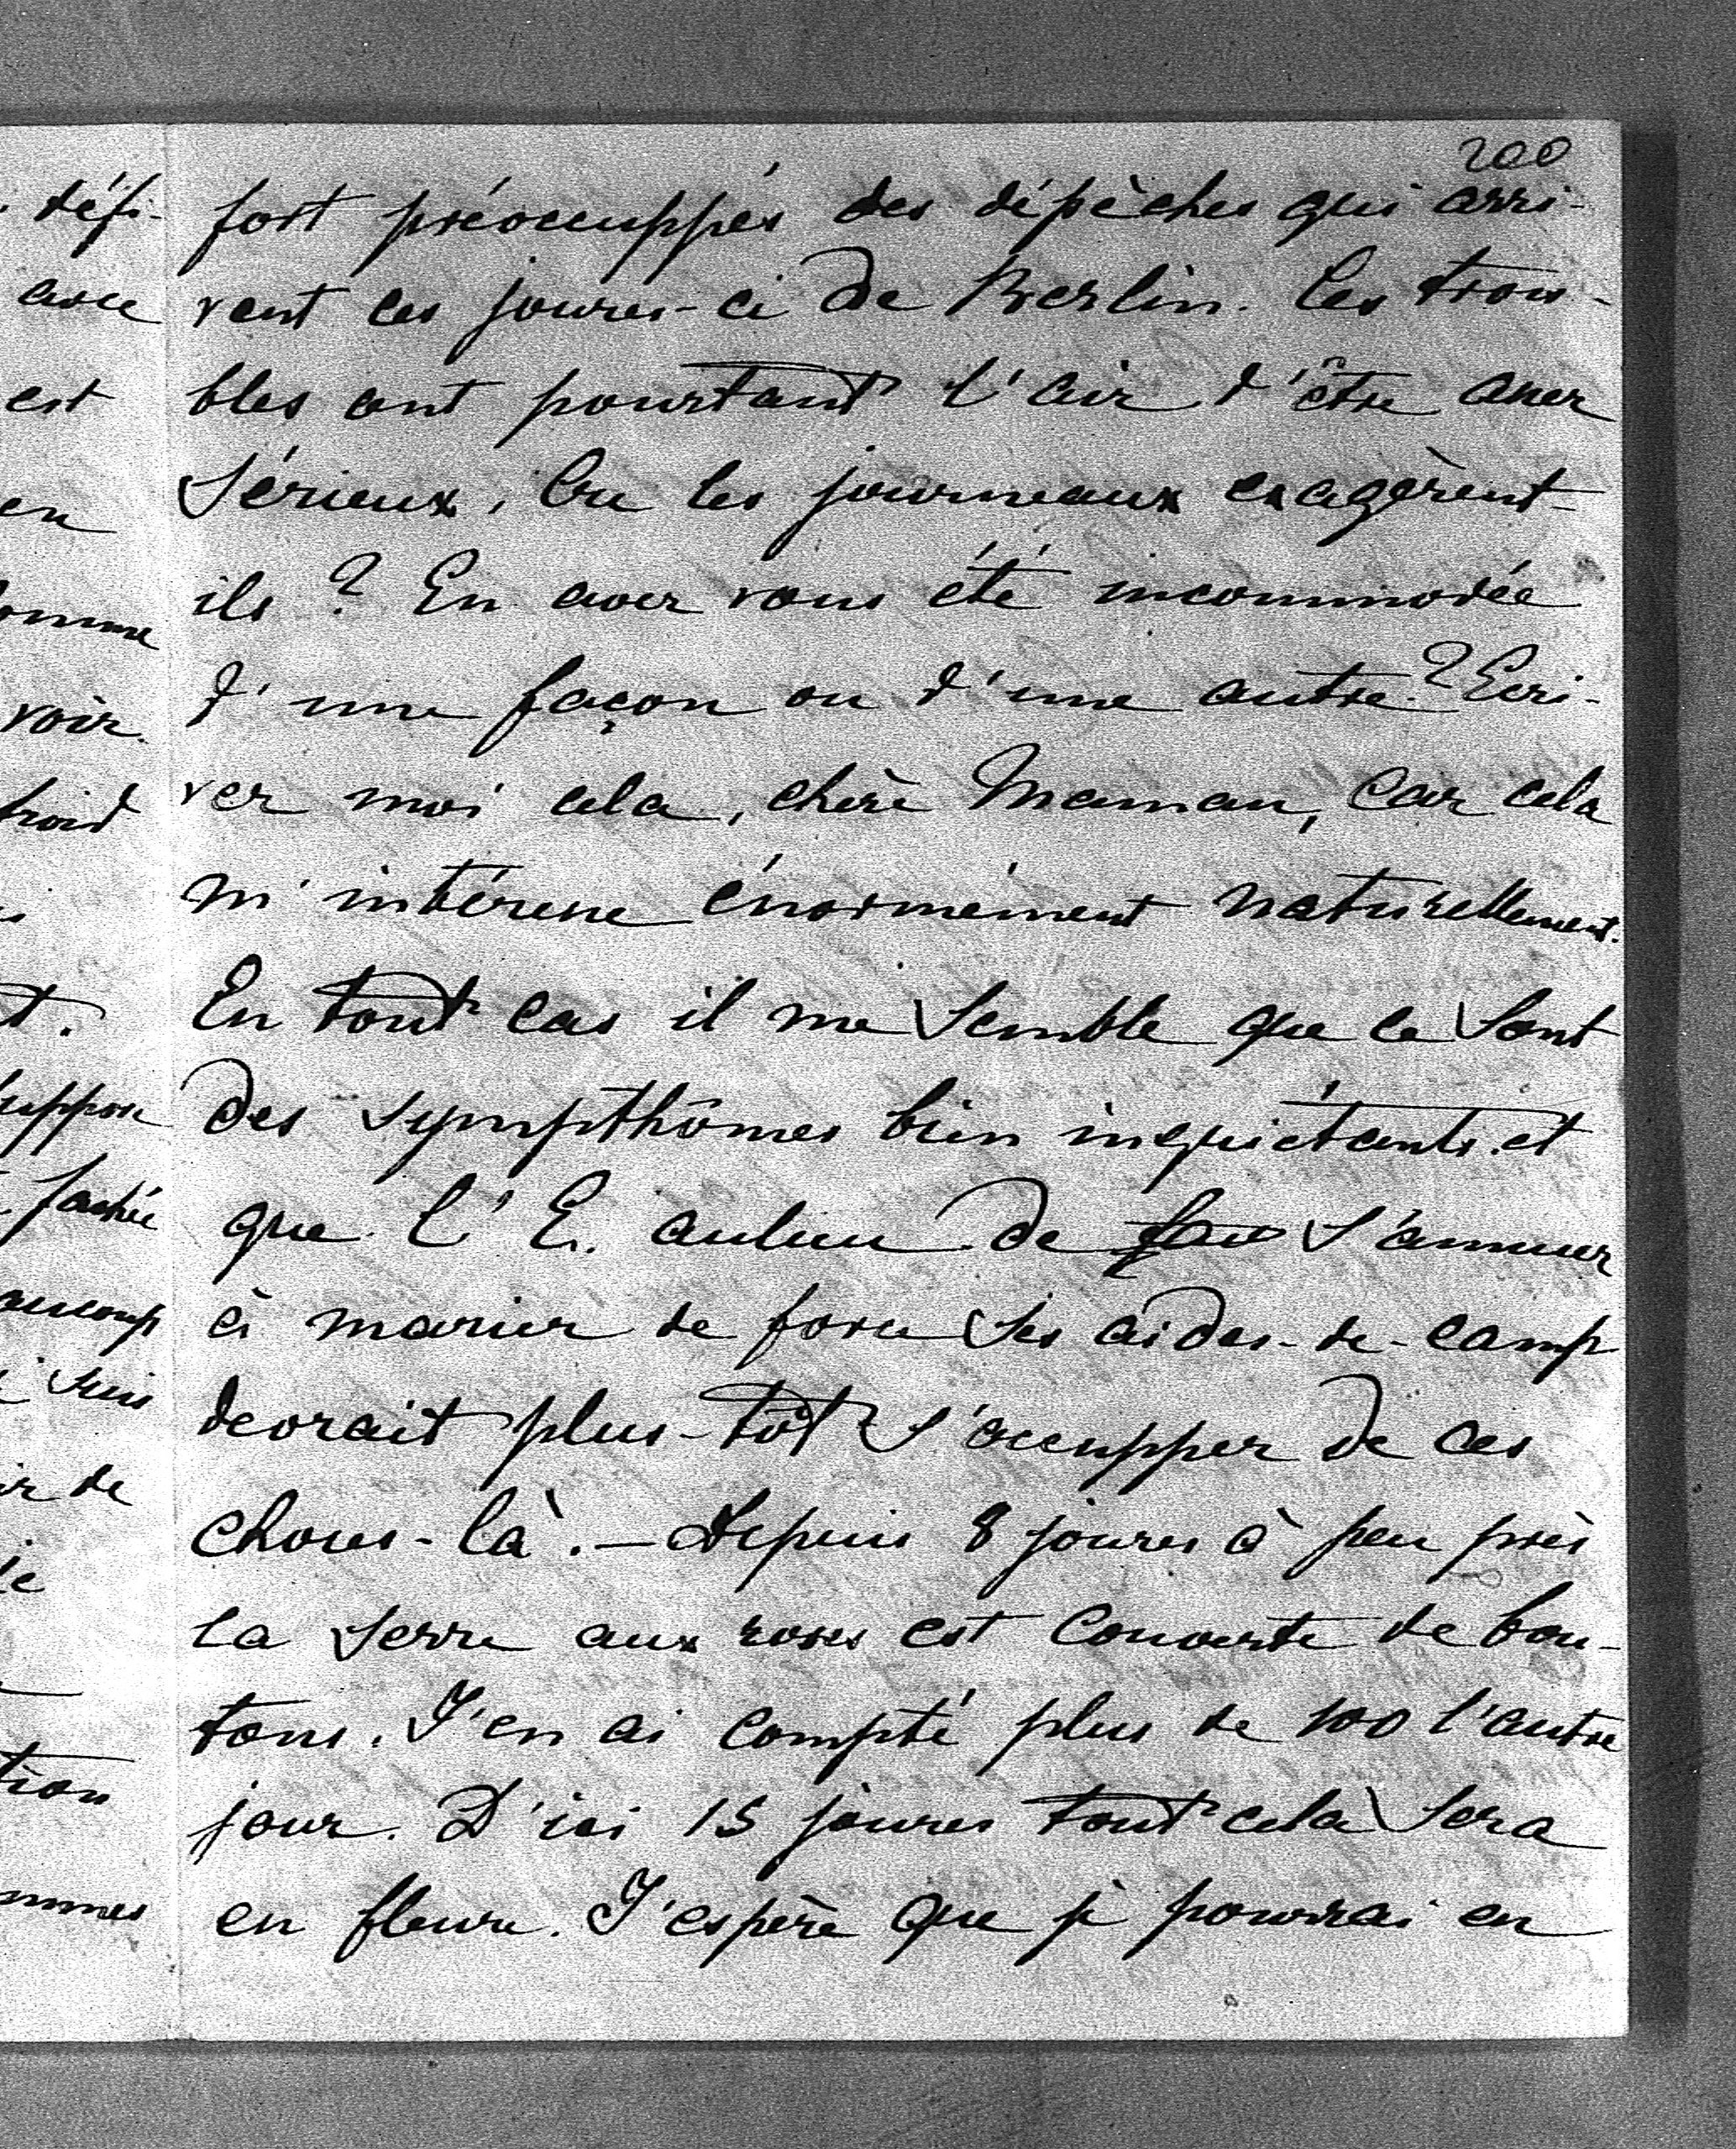 200
fort préoccuppés des dépêches qui arri-
vent ces joures-ci de Berlin. Ces trou-
bles ont pourtant l'air d'être assez
sérieux. Ou les journeaux exagèrent-
ils ? En avez vous été incommodée
d'une façon ou d'une autre ? Ecri-
vez moi cela, chère Maman, car cela
m'intéresse énormément naturellement.
En tout cas il me semble que ce sont
des sympthômes bien inquiétants et
que l'E. aulieu de s'amuser
à marier de force ses aides-de-camp
devrait plus-tôt s'occupper de ces
choses-là. — Depuis 8 joures à peu près
la serre aux roses est couverte de bou-
tons. J'en ai compté plus de 100 l'autre
jour. D'ici 15 joures tout cela sera
en fleurs. J'espère que je pourrai en
défi-
avec
est
en
voir
t.
fachée
suis
de
tion